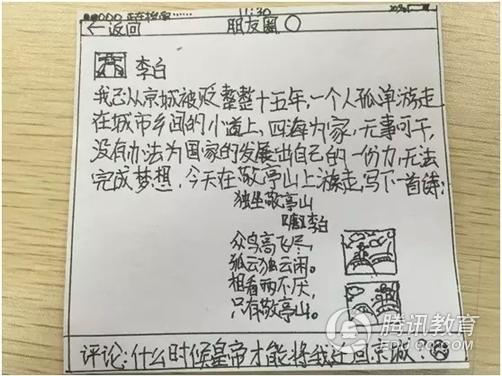 11:30
←返回 朋友圈
李白
我已从京城被贬整整十五年,一个人孤单游走
在城市乡间的小道上,四海为家,无事可干,
没有办法为国家的发展出自己的一份力,无法
完成梦想,今天在敬亭山上游走,写下一首诗:
独坐敬亭山
李白
众鸟高飞尽,
孤云独云闲。
相看两不厌,
只有敬亭山。
腾讯教育
评论:什么时候皇帝才能将我迁回京城?